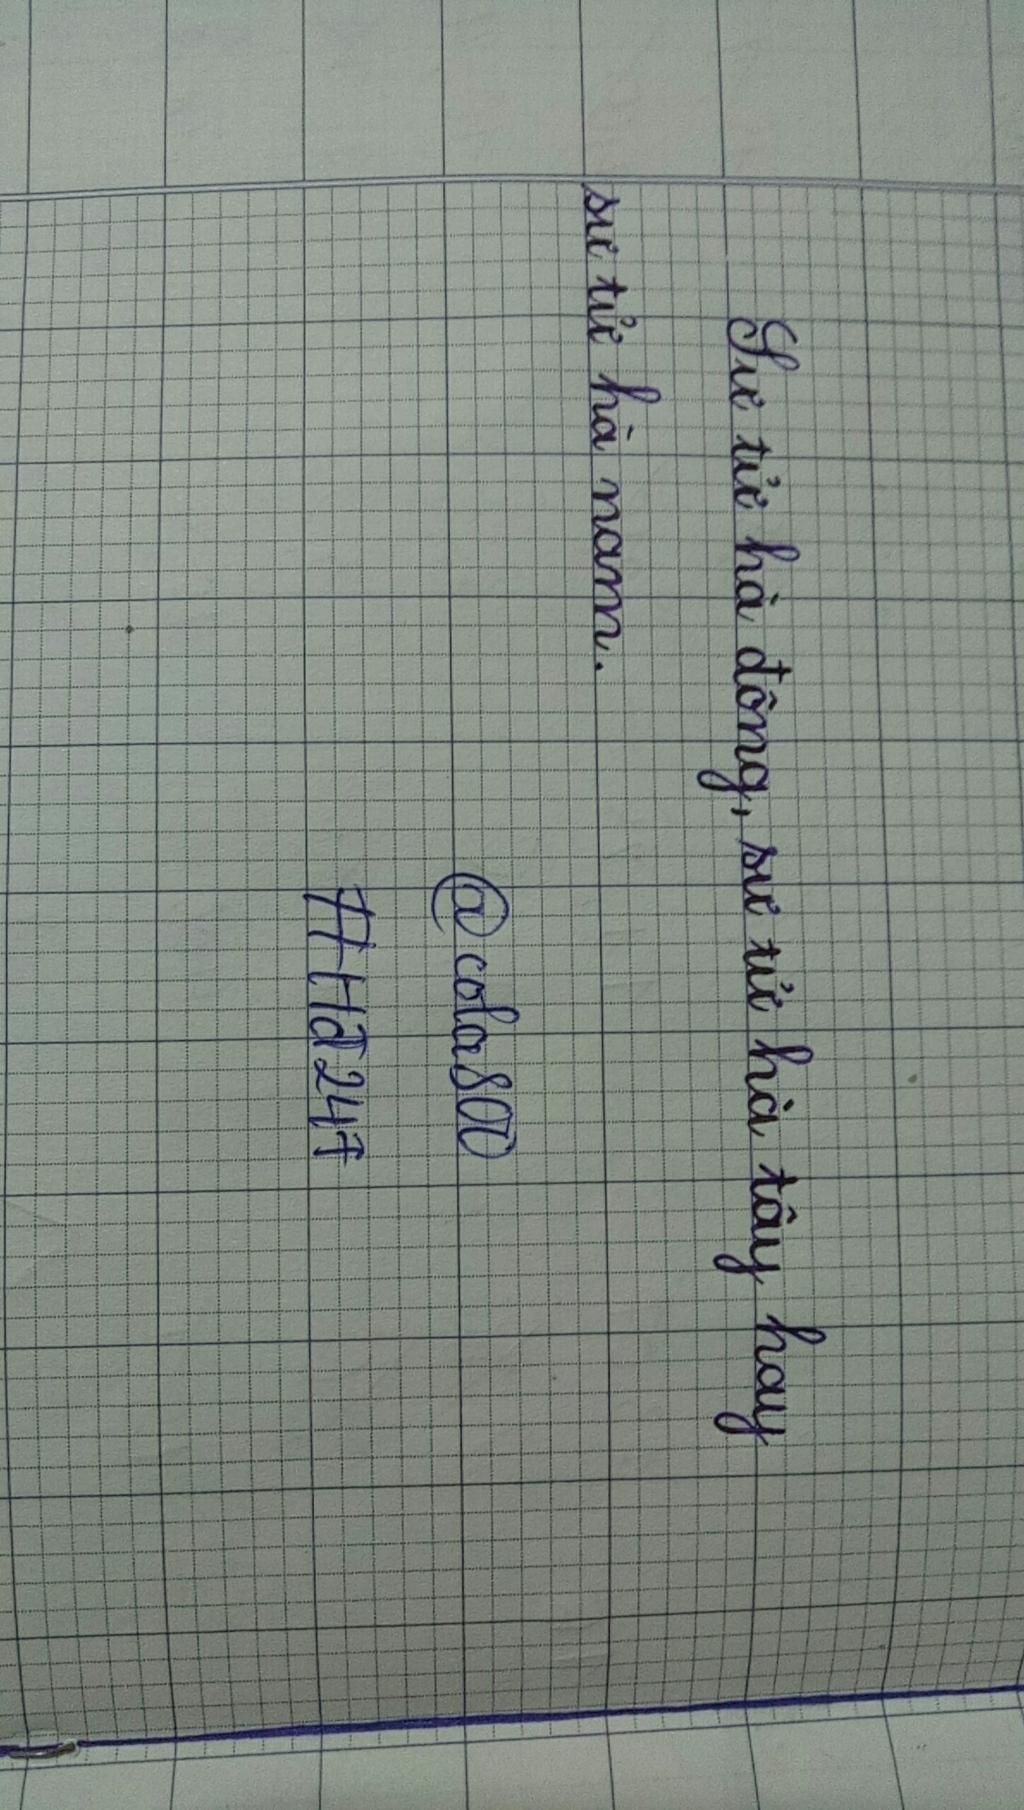 Sư tử hà đông, sư tử hà tây hay
sư tử hà nam.
@cola800
#Hd247